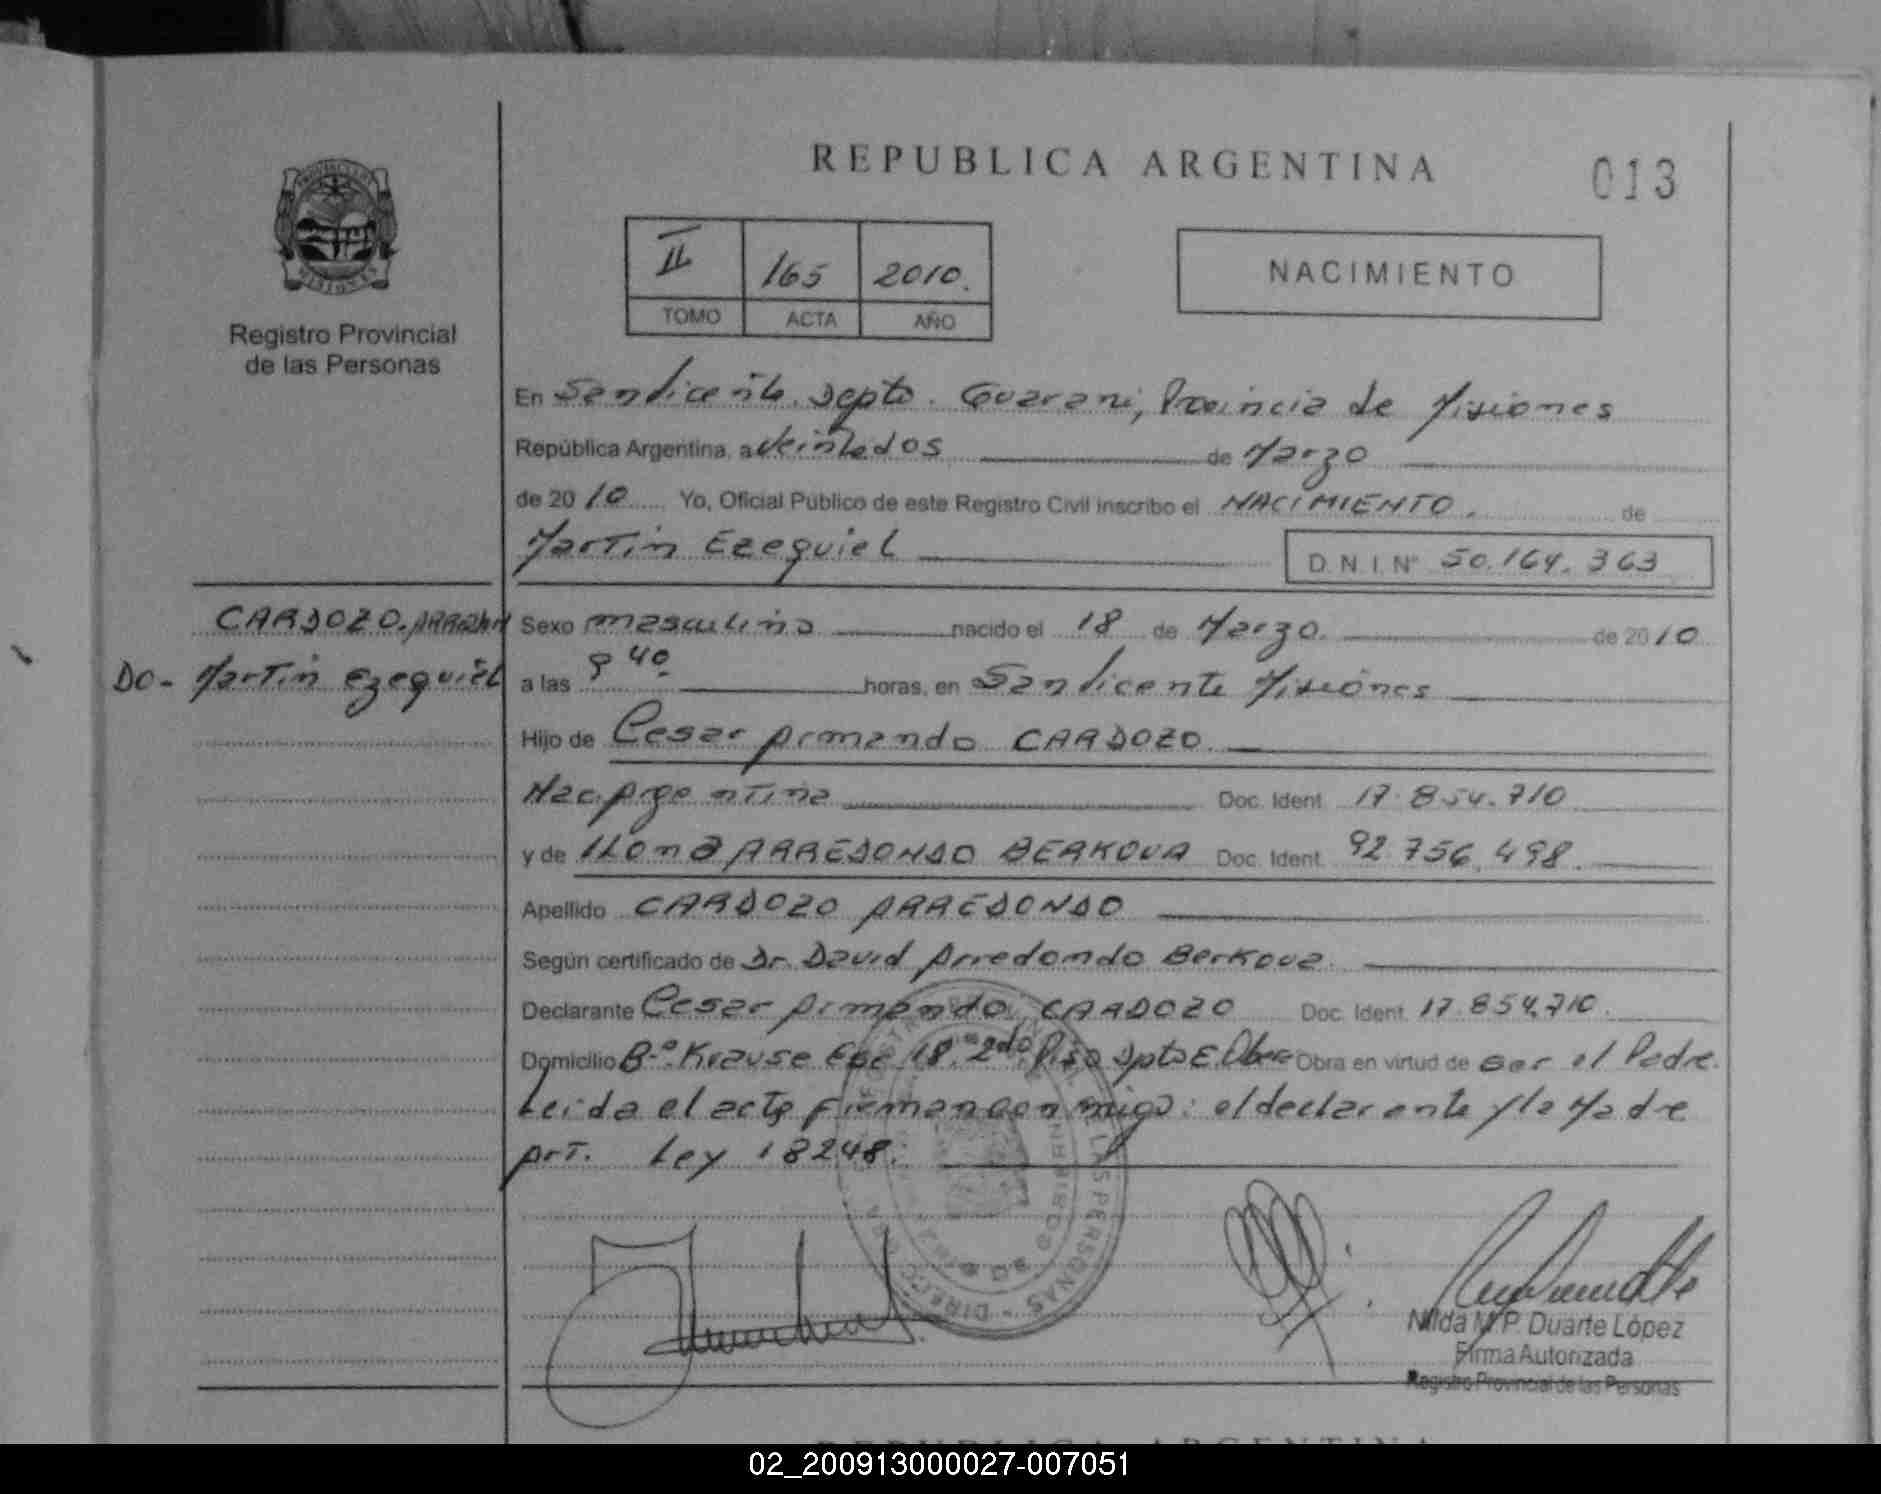 REPUBLICA ARGENTINA
013
II 165 2010.
TOMO ACTA AÑO
NACIMIENTO
Registro Provincial
de las Personas
En San Vicente Depto. Guarani, Provincia de Misiones
República Argentina, a Veintedos de Marzo
de 20 10 Yo, Oficial Público de este Registro Civil inscribo el NACIMIENTO. de
Martin Ezequiel D.N.I.Nº 50.164.363
CARDOZO. ARREDON
DO- Martin Ezequiel
Sexo masculino nacido el 18 de Marzo. de 20 10
a las 9 40 horas, en San Vicente Misiones
Hijo de Cesar Armando CARDOZO
Nac. Argentina Doc. Ident. 17.854.710
y de ILONA ARREDONDO BERKOVA Doc. Ident. 92.756.498.
Apellido CARDOZO ARREDONDO
Según certificado de Dr. David Arredondo Berkova.
Declarante Cesar Armando CARDOZO Doc. Ident. 17.854.710.
Domicilio Bº. Krause 18. 2do Piso Dpto E. Obera Obra en virtud de ser el Padre.
Leida el acta firman conmigo: el declarante y la Madre
Art. Ley 18248.
DE LAS PERSONAS
Nilda M.P. Duarte López
Firma Autorizada
Registro Provincial de las Personas
REPUBLICA ARGENTINA
02_200913000027-007051